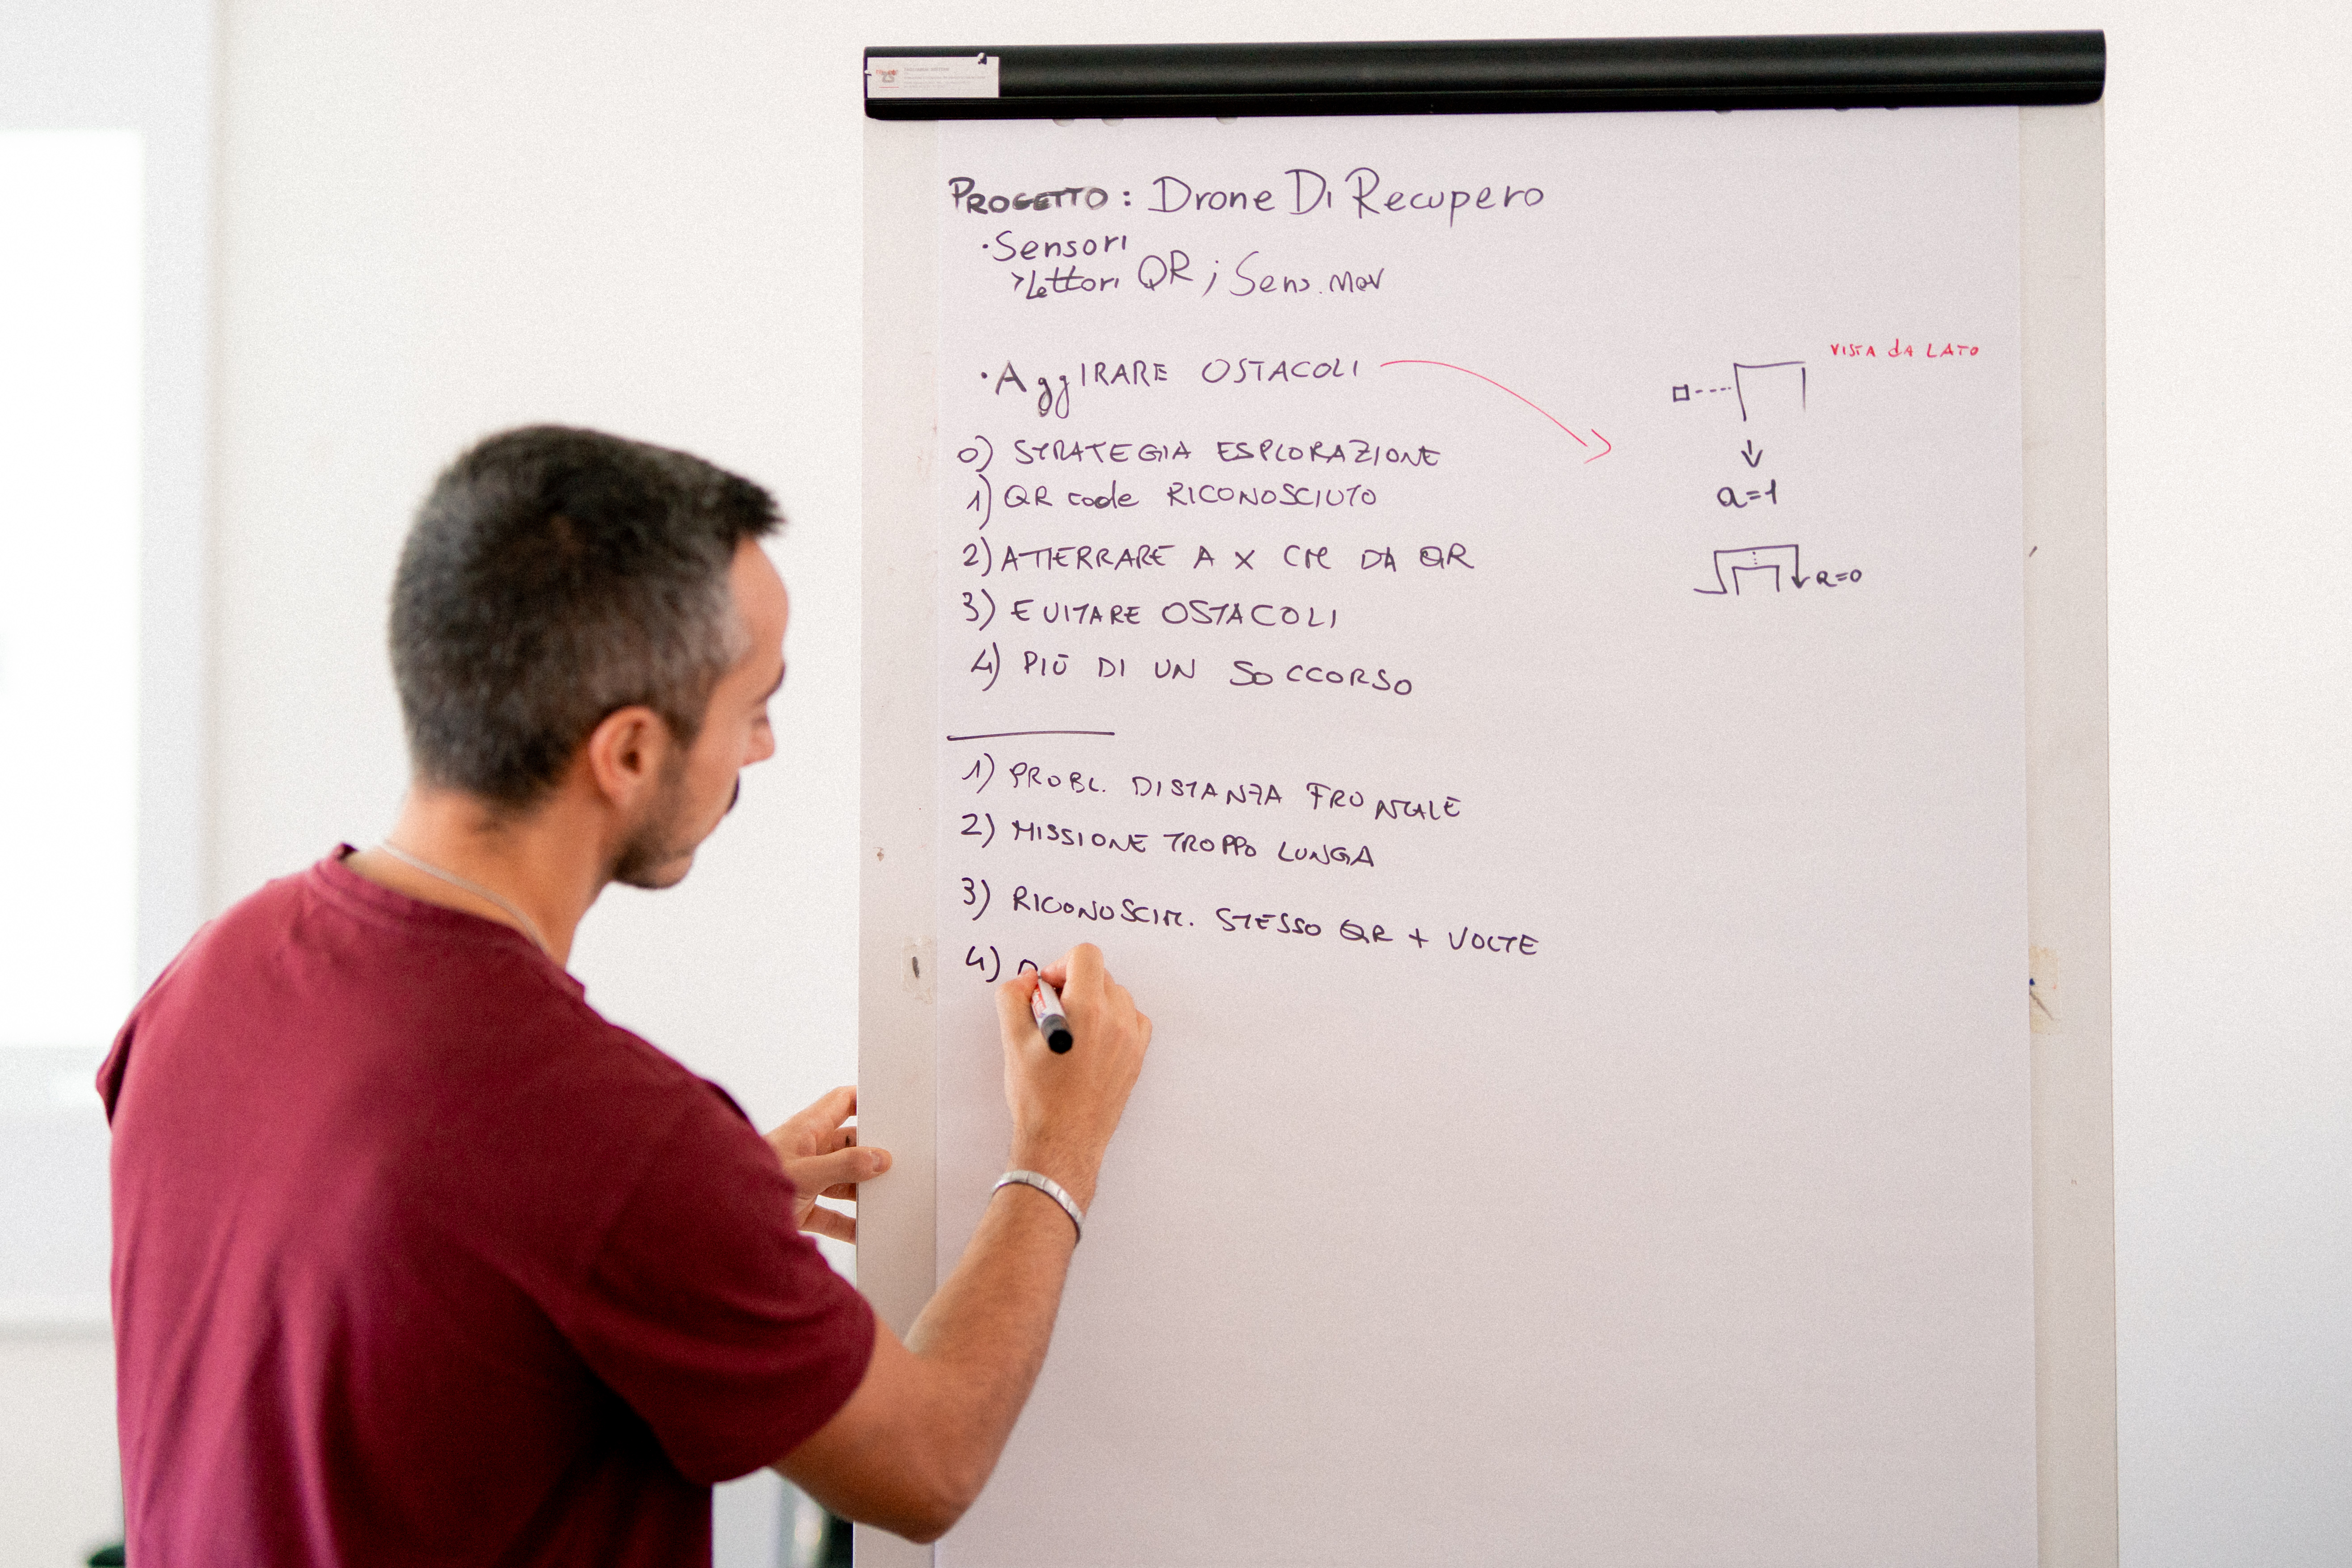 PROGETTO: Drone Di Recupero
·Sensori
>Lettori QR; Sens. mov
·AggIRARE OSTACOLI
VISTA dA LATO
0) STRATEGIA ESPLORAZIONE
1) QR code RICONOSCIUTO
a=1
2) ATTERRARE A X CM DA QR
a=0
3) EVITARE OSTACOLI
4) PIÙ DI UN SOCCORSO
1) PROBL. DISTANZA FRONTALE
2) MISSIONE TROPPO LUNGA
3) RICONOSCIM. STESSO QR + VOLTE
4)